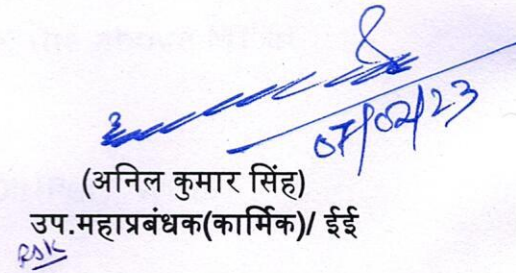 07/02/23
(अनिल कुमार सिंह)
उप.महाप्रबंधक(कार्मिक)/ ईई